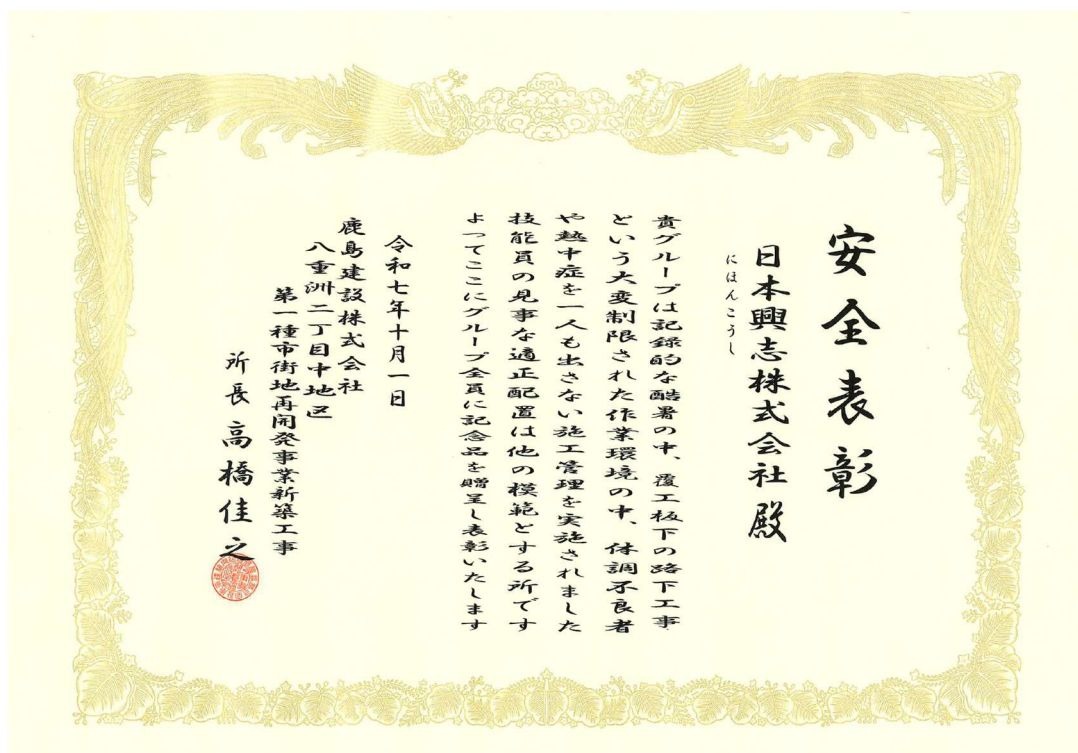 安全表彰
日本興志株式会社 殿
にほんこうし
貴グループは記録的な酷暑の中、覆工板下の路下工事
という大変制限された作業環境の中、体調不良者
や熱中症を一人も出さない施工管理を実施されました
技能員の見事な適正配置は他の模範とする所です
よってここにグループ全員に記念品を贈呈し表彰いたします
令和七年十月一日
鹿島建設株式会社
八重洲二丁目中地区
第一種市街地再開発事業新築工事
所長 高橋佳之